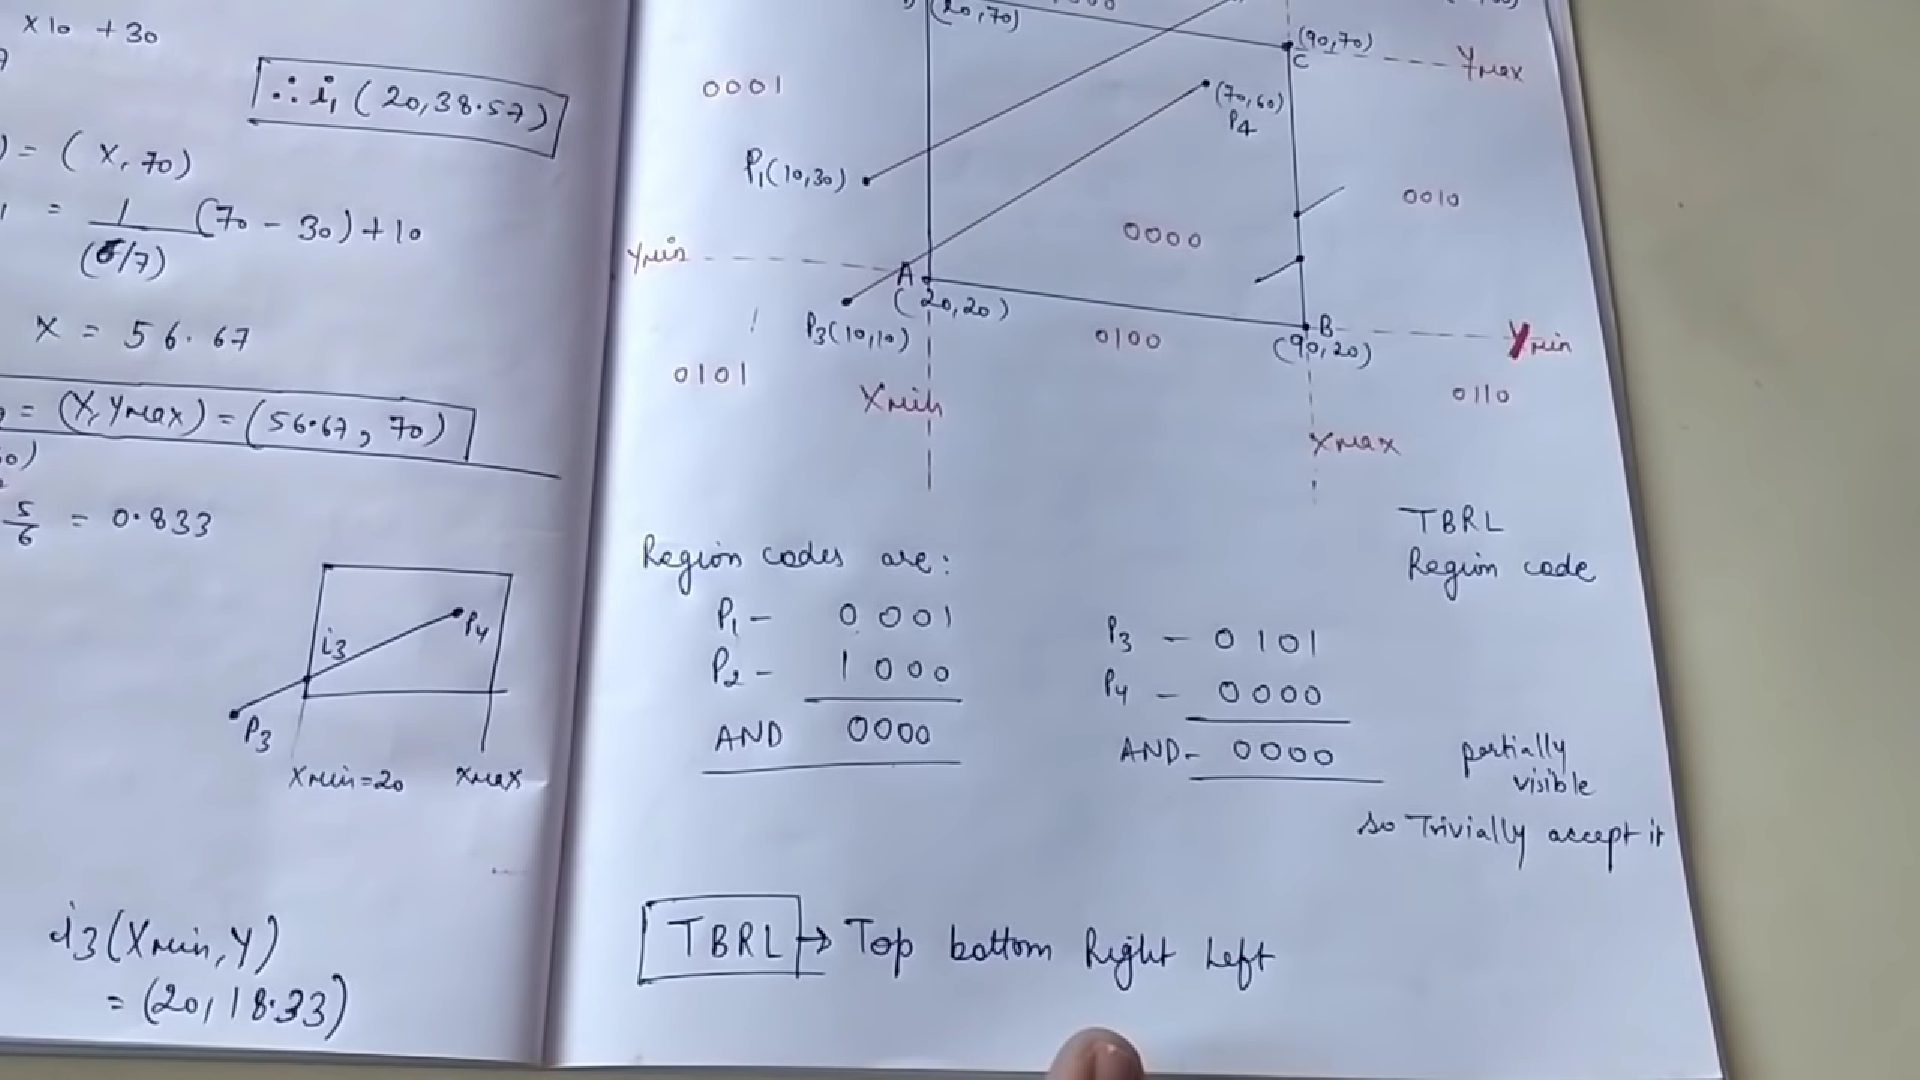 x10 + 30
∴ i₁ ( 20,38.57)
) = ( x, 70)
= 1/(6/7) (70 - 30) + 10
x = 56.67
= (x, Ymax) = (56.67, 70)
5/6 = 0.833
i3
P4
P3
Xmin=20
Xmax
i3(Xmin,Y)
= (20,18.33)
(20,70)
(90,70)
C
Ymax
0001
(70,60)
P4
P1(10,30)
0010
0000
Ymin
A
(20,20)
P3(10,10)
0100
B
(90,20)
Ymin
0101
Xmin
0110
Xmax
TBRL
Region code
Region codes are:
P1 - 0001
P2 - 1000
AND 0000
P3 - 0101
P4 - 0000
AND - 0000
partially
visible
so Trivially accept it
TBRL → Top bottom Right Left